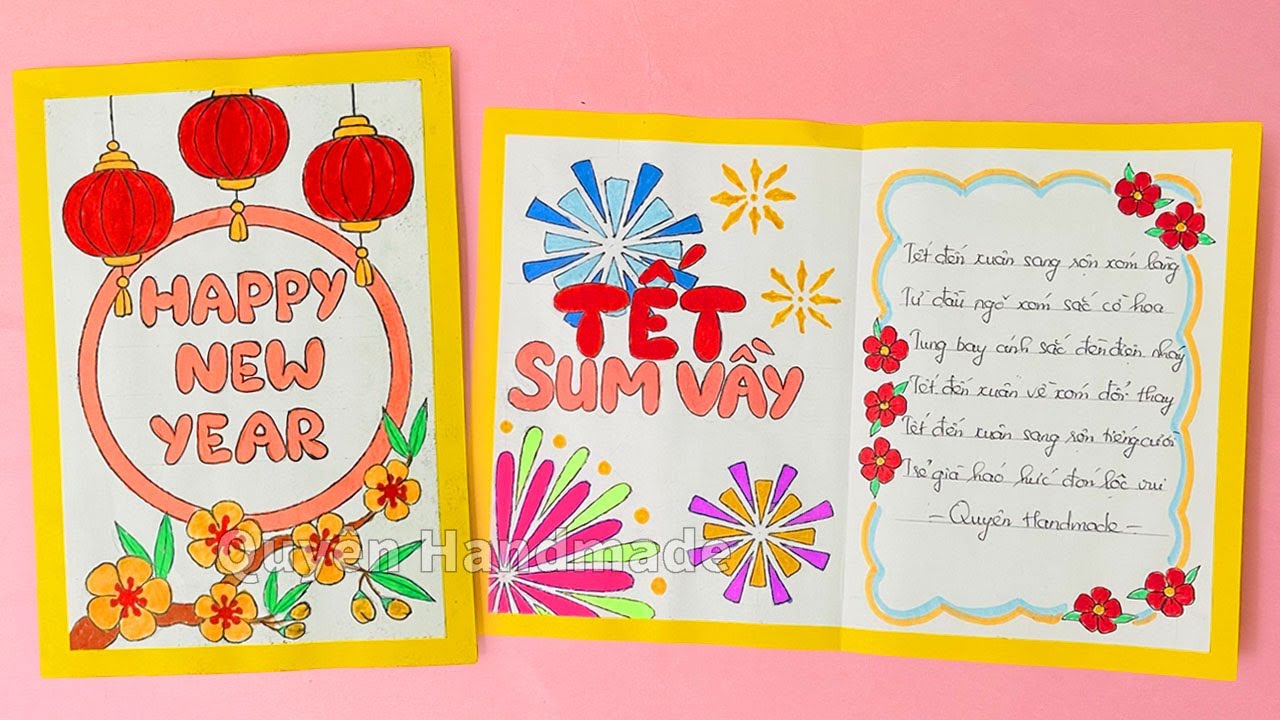 HAPPY
NEW
YEAR
TẾT
SUM VẦY
Tết đến xuân sang rộn xóm làng
Từ đầu ngõ xóm sắc cờ hoa
Tung bay ánh sắc đèn đèn nháy
Tết đến xuân về xóm đổi thay
Tết đến xuân sang rộn tiếng cười
Trẻ già háo hức đón lộc vui
- Quyên Handmade -
Quyên Handmade